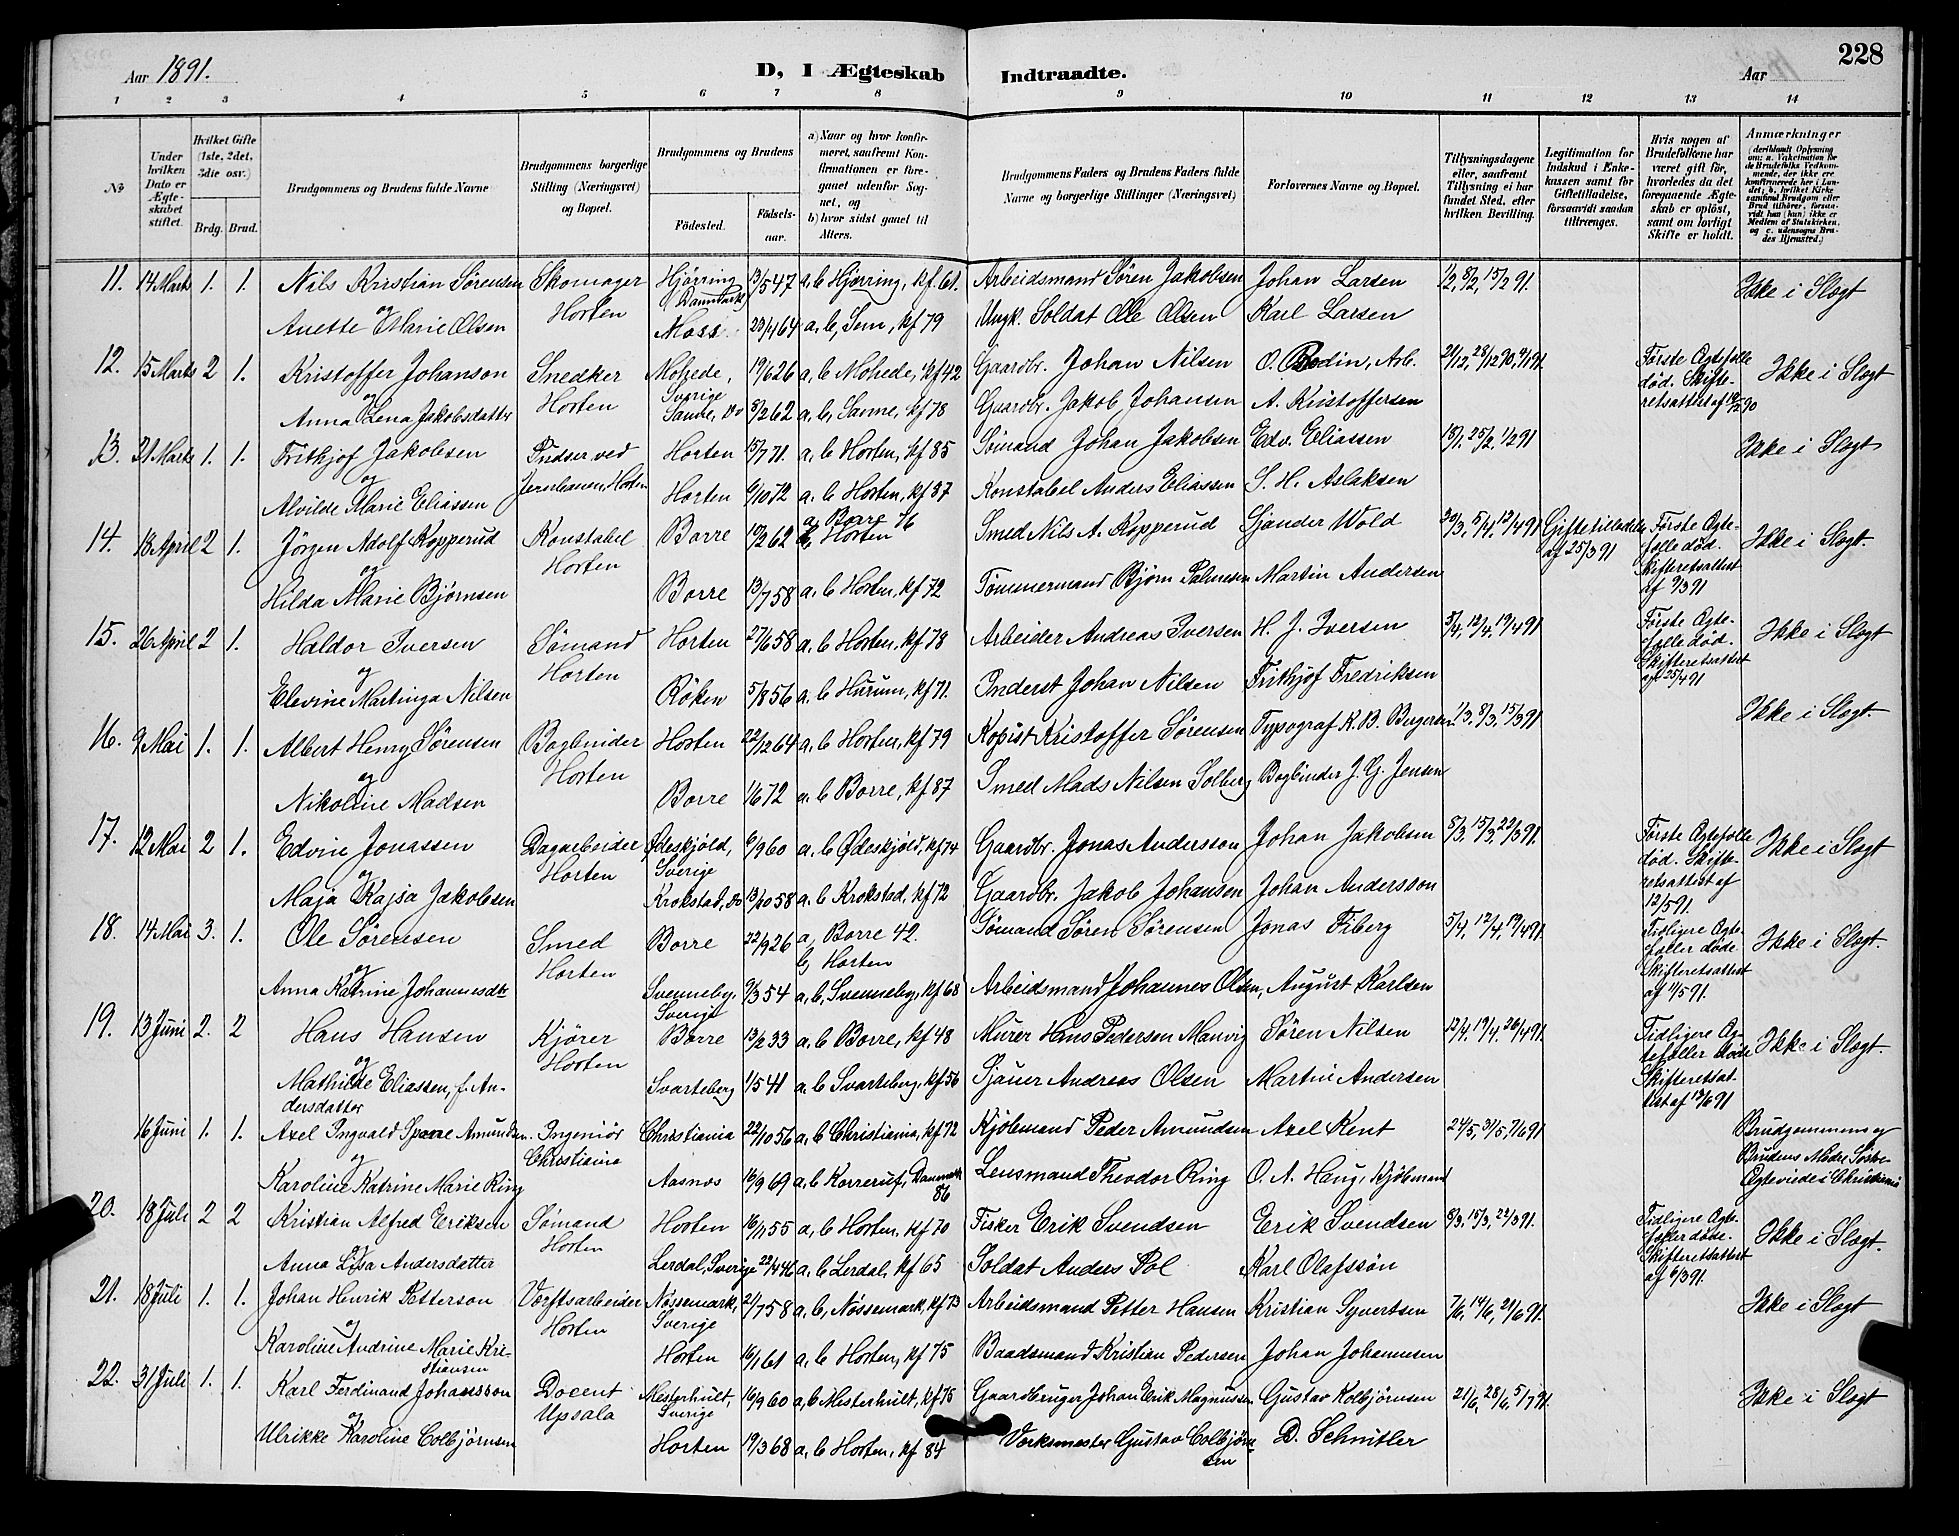 228
Aar 1891.
D, I Ægteskab Indtraadte.
Aar
1 2 3 4 5 6 7 8 9 10 11 12 13 14
No
Under hvilken Dato er Ægteskabet stiftet.
Hvilket Gifte (1ste, 2det, 3die osv.)
Brdg. Brud.
Brudgommens og Brudens fulde Navne
Brudgommens borgerlige Stilling (Næringsvei) og Bopæl.
Brudgommens og Brudens
Fødested. Fødselsaar.
a) Naar og hvor konfirmeret, saafremt Konfirmationen er foregaaet udenfor Sognet, og
b) hvor sidst gaaet til Alters.
Brudgommens Faders og Brudens Faders fulde Navne og borgerlige Stillinger (Næringsvei)
Forlovernes Navne og Bopæl.
Tillysningsdagene eller, saafremt Tillysning ei har fundet Sted, efter hvilken Bevilling.
Legitimation for Indskud i Enkekassen samt for Giftetilladelse, forsaavidt saadan tiltrænges.
Hvis nogen af Brudefolkene har været gift før, hvorledes da det foregaaende Ægteskab er opløst, samt om lovligt Skifte er holdt.
Anmærkninger (deriblandt Oplysning om: a. Vakcination for de Brudefolks Vedkommende, der ikke ere konfirmerede her i Landet; b. hvilket Kirkesamfund Brudgom eller Brud tilhører, forsaavidt han (hun) ikke er Medlem af Statskirken, og c. udensogns Brudes Hjemsted.)
11. 14 Marts 1. 1. Nils Kristian Sørensen Skomager Hjørring 13/5 47 a, b Hjørring, kf. 61. Arbeidsmand Søren Jakobsen Johan Larsen 1/2, 8/2, 15/2 91. Ikke i Slægt
og Horten Danmark
Anette Marie Olsen Moss 23/4 64 a, b, Sem, kf 79 Ungk. Soldat Ole Olsen Karl Larsen
12. 15 Marts 2 1. Kristoffer Johanson Snedker Mohede, 19/6 26 a, b Mohede, kf 42 Gaardbr. Johan Nilsen O. Bodin, Arb. 21/12, 28/12 90, 4/1 91. Første Ægtefælle Ikke i Slægt
og Horten Sverige død. Skifte-
Anna Lena Jakobsdatter Sanne, do 8/2 62 a, b, Sanne, kf 78 Gaardbr. Jakob Johansen A. Kristoffersen retsattest af 90
13. 21 Marts 1. 1. Frithjof Jakobsen Pudser ved Horten 15/7 71. a, b Horten, kf 85 Sømand Johan Jakobsen Edv. Eliassen 18/1, 25/2, 1/2 91 Ikke i Slægt
og Jernbanen, Horten
Alvilde Marie Eliassen Horten 6/10 72 a. b Horten, kf 87 Konstabel Anders Eliassen S. H. Aslaksen
14. 18 April 2 1. Jørgen Adolf Kopperud Konstabel Borre 19/2 62 a, Borre 76 b, Horten Smed Nils A. Kopperud Sjander Wold 30/3, 5/4, 12/4 91 Giftetilladelse af 25/3 91 Første Ægte- Ikke i Slægt.
og Horten fælle død. Skifteretsattest
Hilda Marie Bjørnsen Borre 13/7 58 a. b Horten, kf 72 Tømmermand Bjørn Palmesen Martin Andersen af 9/3 91
15. 26 April 2 1. Haldor Iversen Sømand Horten 27/6 58 a, b Horten, kf 73 Arbeider Andreas Iversen H. J. Iversen 5/4, 12/4, 19/4 91 Første Ægte- Ikke i Slægt
og Horten fælle død. Skifteretsattest
Elevine Martinga Nilsen Røken 5/8 56 a. b Hurum, kf 71. Inderst Johan Nilsen Frithjof Fredriksen af 25/4 91
16. 9 Mai 1. 1. Albert Henry Sørensen Bogbinder Horten 22/12 64 a. b Horten, kf 79 Kopist Kristoffer Sørensen Typograf K. B. Bergersen 1/3, 8/3, 15/3 91 Ikke i Slægt.
og Horten
Nikoline Madsen Borre 1/6 72 a. b Borre, kf 87 Smed Mads Nilsen Solberg Bogbinder J. G. Jensen
17. 12 Mai 2 1. Edvin Jonassen Dagarbeider Ødeskjöld, 6/9 60 a. b Ødeskjöld, kf 74 Gaardbr. Jonas Andersson Johan Jakobsen 8/3, 15/3, 22/3 91. Første Ægtefælle Ikke i Slægt
og Horten Sverige død. Skifte-
Maja Kajsa Jakobsen Krokstad, do 13/10 58 a. b Krokstad, kf 72 Gaardbr. Jakob Johansen Johan Andersson retsattest af 12/5 91.
18. 14 Mai 3. 1. Ole Sørensen Smed Borre 22/9 26 a, Borre 42. Sømand Søren Sørensen Jonas Fiberg 5/4, 12/4, 19/4 91. Tidligere Ægte- Ikke i Slægt.
og Horten b, Horten fæller døde. Skifteretsattest
Anna Katrine Johannesdtr Svenneby, Sverige 9/3 54 a, b, Svenneby, kf 68 Arbeidsmand Johannes Olsen, August Karlsen af 11/5 91.
19. 13 Juni 2. 2 Hans Hansen Kjører Borre 13/2 33 a. b Borre, kf 48 Murer Hans Pedersen Manvig Søren Nilsen 12/4, 19/4, 26/4 91. Tidligere Æg- Ikke i Slægt.
og Horten tefæller døde
Mathilde Eliassen, f. An- Svarteberg 1/5 41 a. b Svarteberg, kf 56 Sjauer Andreas Olsen Martin Andersen Skifteretsat-
dersdatter test af 12/6 91
16 Juni 1. 1. Axel Ingvald Sparre Amundsen Ingeniør Christiania 22/10 56 a. b Christiania, kf 72 Kjøbmand Peder Amundsen Axel Kent 24/5, 31/5, 7/6 91 Brudgommens og
og Christiania Brudens Mødre Søstre
Karoline Katrine Marie Ring Aasnes 16/9 69 a, b, Danmark 86 Lensmand Theodor Ring O. A. Haug, Kjøbmand Ægteviede i Christiania
20. 18 Juli 2 2 Kristian Alfred Eriksen Sømand Horten 16/1 55 a, b Horten, kf 70 Fisker Erik Svendsen Erik Svendsen 8/3, 15/3, 22/3 91. Tidligere Ægte- Ikke i Slægt.
og Horten fæller døde. Skifteretsattest
Anna Lisa Andersdatter Lerdal, Sverige 22/4 46 a. b Lerdal, kf 65 Soldat Anders Pol Karl Olafssøn af 6/3 91.
21. 18 Juli 1. 1. Johan Henrik Petterson Værftsarbeider Nössemark, 21/7 58 a, b, Nössemark, kf 73 Arbeidsmand Petter Hansen Kristian Syvertsen 7/6, 14/6, 21/6 91. Ikke i Slægt
og Horten Sverige
Karoline Andrine Marie Kri- Horten 16/1 61 a, b Horten, kf 75 Baadsmand Kristian Pedersen Johan Johannesen
stiansen
22. 31 Juli 1. 1. Karl Ferdinand Johansson Docent Mesterhult, 16/9 60 a, b Mesterhult, kf 75 Gaardbruger Johan Erik Magnussen Gustav Kolbjørnsen 21/6, 28/6, 5/7 91. Ikke i Slægt
og Upsala Sverige
Ulrikke Karoline Colbjørnsen Horten 19/3 68 a, b Horten, kf 84 Værksmester Gustav Colbjørn- D. Schnitler
sen